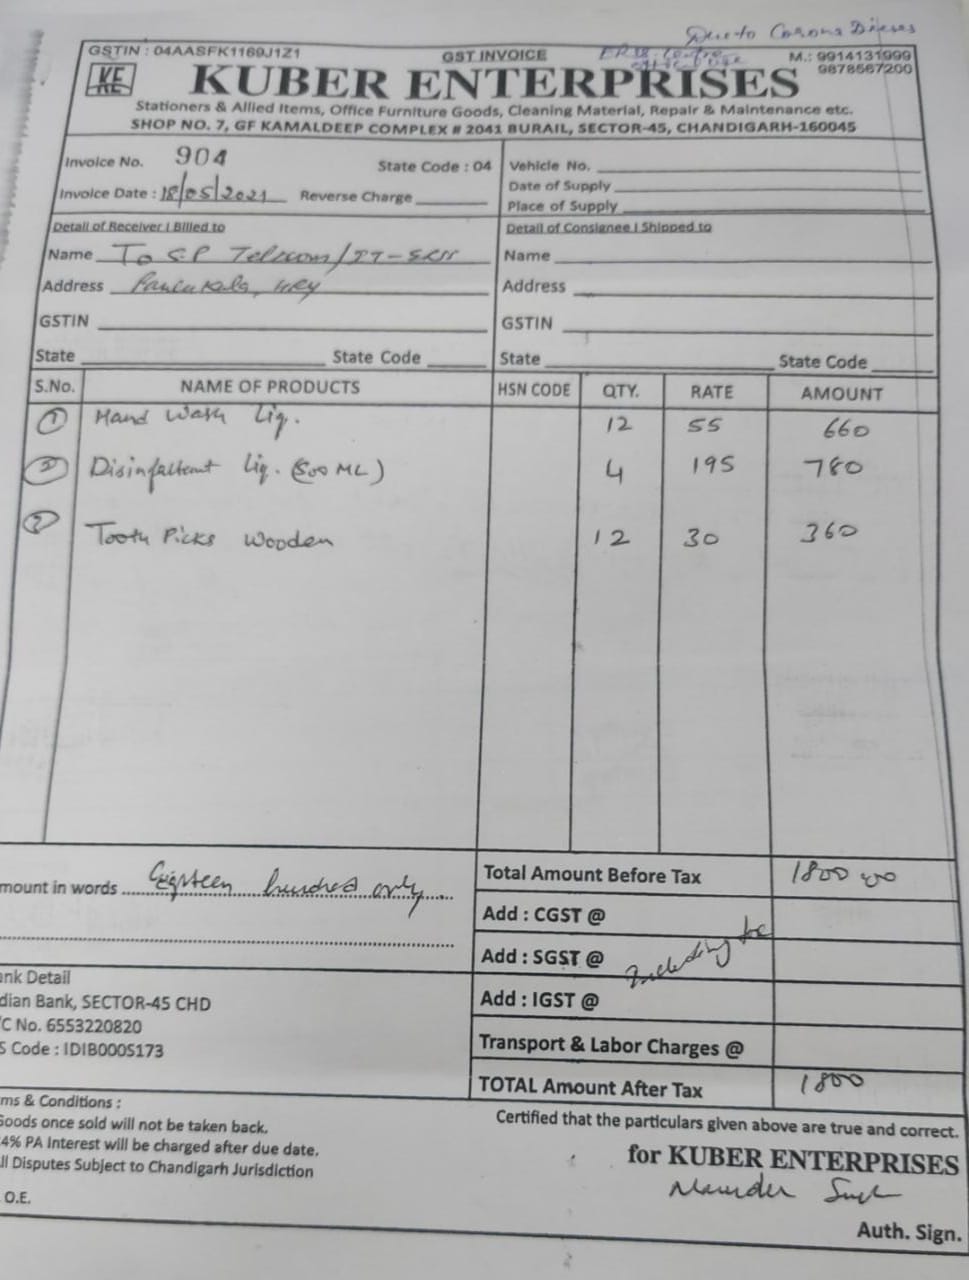 Due to Corona Dieses
GSTIN : 04AASFK1169J1Z1 GST INVOICE M.: 9914131999
9878567200
KE
KE
KUBER ENTERPRISES
Stationers & Allied Items, Office Furniture Goods, Cleaning Material, Repair & Maintenance etc.
SHOP NO. 7, GF KAMALDEEP COMPLEX # 2041 BURAIL, SECTOR-45, CHANDIGARH-160045
Invoice No. 904 State Code : 04
Invoice Date : 18/05/2021 Reverse Charge
Vehicle No.
Date of Supply
Place of Supply
Detail of Receiver | Billed to
Name To S.P Telecom/IT-
Address Panchkula, HRY
GSTIN
State State Code
Detail of Consignee | Shipped to
Name
Address
GSTIN
State State Code
S.No. NAME OF PRODUCTS HSN CODE QTY. RATE AMOUNT
1 Hand Wash Liq. 12 55 660
Disinfactent Liq. (500 ML) 4 195 780
2 Tooth Picks Wooden 12 30 360
mount in words Eighteen hundred only
Total Amount Before Tax 1800 00
Add : CGST @
Add : SGST @
Including
Add : IGST @
Transport & Labor Charges @
TOTAL Amount After Tax 1800
ank Detail
dian Bank, SECTOR-45 CHD
/C No. 6553220820
S Code : IDIB000S173
ms & Conditions :
Goods once sold will not be taken back.
4% PA Interest will be charged after due date.
ll Disputes Subject to Chandigarh Jurisdiction
O.E.
Certified that the particulars given above are true and correct.
for KUBER ENTERPRISES
Auth. Sign.